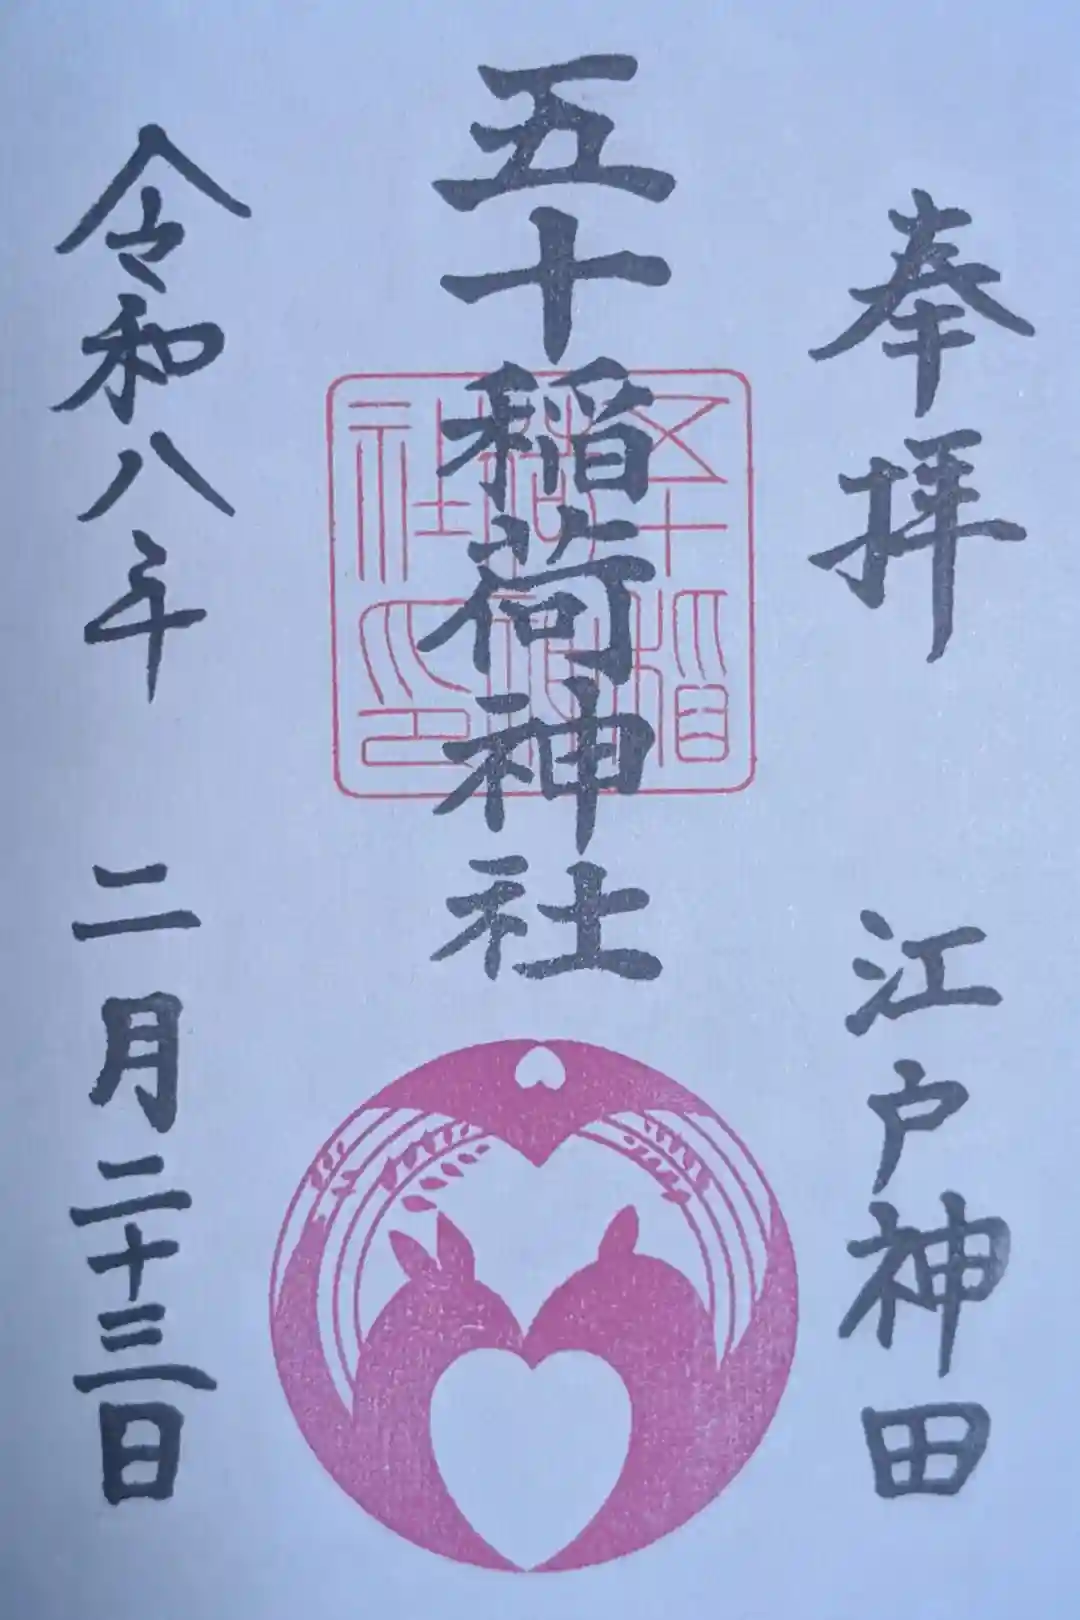 奉拝　江戸神田
五十稲荷神社
五十稲荷神社印
令和八年　二月二十三日